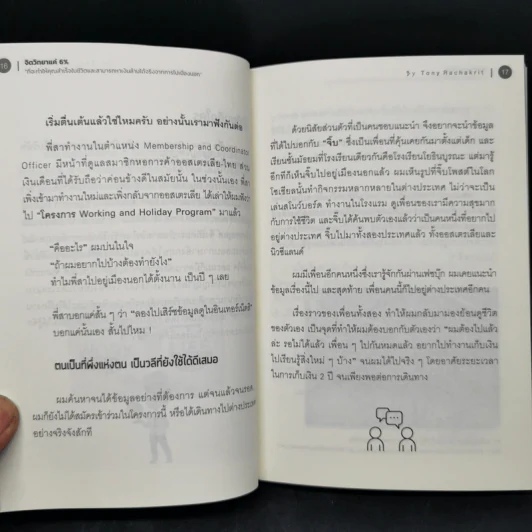 16
จิตวิทยาแค่ 6%
เริ่มตื่นเต้นแล้วใช่ไหมครับ อย่างนั้นเรามาฟังกันต่อ
พี่สาทำงานในตำแหน่ง Membership and Coordinator
Officer มีหน้าที่ดูแลสมาชิกหอการค้าออสเตรเลีย-ไทย ส่วน
เงินเดือนที่ได้รับถือว่าค่อนข้างดีในสมัยนั้น ในช่วงนั้นเอง พี่สา
เพิ่งเข้ามาทำงานใหม่และเพิ่งกลับจากออสเตรเลีย ได้เล่าให้ผมฟัง
ไป “โครงการ Working and Holiday Program” มาแล้ว
“คืออะไร” ผมบ่นในใจ
“ถ้าผมอยากไปบ้างต้องทำยังไง”
ทำไมพี่สาไปอยู่เมืองนอกได้ตั้งนาน เป็นปี ๆ เลย
พี่สาบอกแค่สั้น ๆ ว่า “ลองไปเสิร์ชข้อมูลดูในอินเทอร์เน็ตสิ”
บอกแค่นั้นเอง สั้นไปไหม !
ตนเป็นที่พึ่งแห่งตน เป็นวลีที่ยังใช้ได้ดีเสมอ
ผมค้นหาจนได้ข้อมูลอย่างที่ต้องการ แต่จนแล้วจนรอด
ผมก็ยังไม่ได้สมัครเข้าร่วมในโครงการนี้ หรือได้เดินทางไปต่างประเทศ
อย่างจริงจังสักที
By Tony Rachakrit
17
ด้วยนิสัยส่วนตัวที่เป็นคนชอบแนะนำ จึงอยากจะนำข้อมูล
ที่ได้ไปบอกกับ “จิ๊บ” ซึ่งเป็นเพื่อนที่คุ้นเคยกันมาตั้งแต่เด็ก และ
เรียนชั้นมัธยมที่โรงเรียนเดียวกันคือโรงเรียนโยธินบูรณะ แต่มารู้
อีกทีก็เห็นจิ๊บไปอยู่เมืองนอกแล้ว ผมเห็นรูปที่จิ๊บโพสต์ในโลก
โซเชียลนั้นทำกิจกรรมหลากหลายในต่างประเทศ ไม่ว่าจะเป็น
เล่นสโนว์บอร์ด ทำงานในโรงแรม ดูเพื่อนของเรามีความสุขมาก
กับการใช้ชีวิต และจิ๊บได้ค้นพบตัวเองแล้วว่าเป็นคนหนึ่งที่อยากไป
อยู่ต่างประเทศ จิ๊บไปมาทั้งสองประเทศแล้ว ทั้งออสเตรเลียและ
นิวซีแลนด์
ผมมีเพื่อนอีกคนหนึ่งซึ่งเรารู้จักกันผ่านเฟซบุ๊ก ผมเคยแนะนำ
ข้อมูลเรื่องนี้ไป และสุดท้าย เพื่อนคนนี้ก็ไปอยู่ต่างประเทศอีกคน
เรื่องราวของเพื่อนทั้งสอง ทำให้ผมกลับมามองย้อนดูชีวิต
ของตัวเอง เป็นจุดที่ทำให้ผมต้องบอกกับตัวเองว่า “ผมต้องไปแล้ว
ล่ะ รอไม่ได้แล้ว เพื่อน ๆ ไปกันหมดแล้ว อยากไปทำงานเก็บเงิน
ไปเรียนรู้สิ่งใหม่ ๆ บ้าง” จนผมได้ไปจริง ๆ โดยอาศัยระยะเวลา
ในการเก็บเงิน 2 ปี จนเพียงพอต่อการเดินทาง